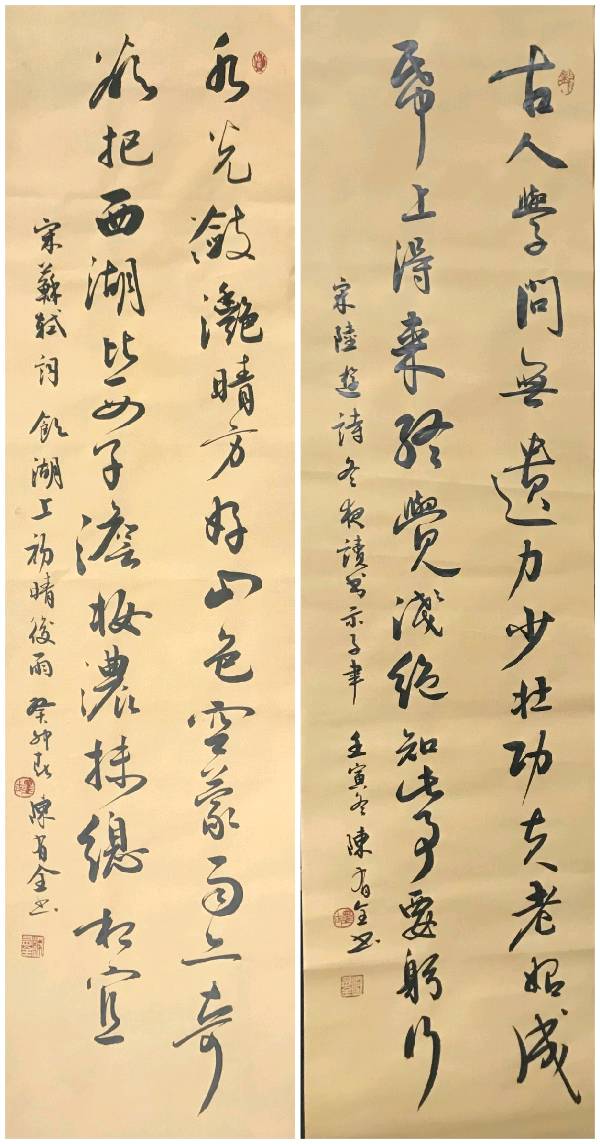 古人學問無遺力少壯功夫老始成
帋上得來終覺淺絕知此事要躬行
宋陸遊詩冬夜讀書示子聿 壬寅冬陳有金書
水光瀲灧晴方好山色空蒙雨亦奇
欲把西湖比西子澹妝濃抹總相宜
宋蘇軾詞 飲湖上初晴後雨 癸卯春 陳有金書